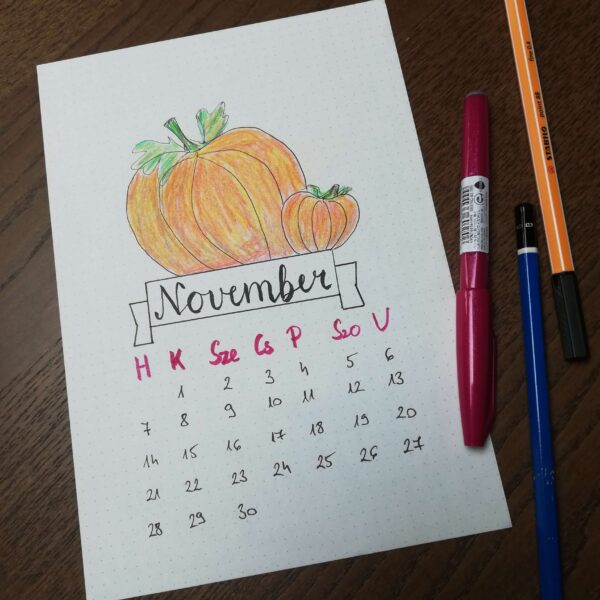 November
H K Sze Cs P Szo V
1 2 3 4 5 6
7 8 9 10 11 12 13
14 15 16 17 18 19 20
21 22 23 24 25 26 27
28 29 30
STABILO point 88 fine 0,4